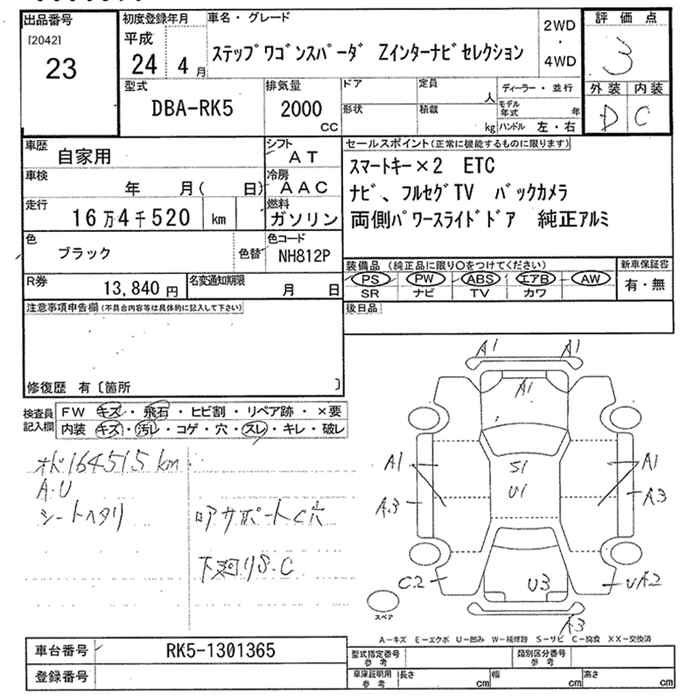 出品番号
[2042]
23
初度登録年月
平成
24 4 月
車名・グレード
ステップワゴンスパーダ Zインターナビセレクション
2WD
・
4WD
評価点
3
外装 内装
D C
型式
DBA-RK5
排気量
2000
CC
ドア
形状
定員
人
積載
kg
ディーラー・並行
モデル
年式 年
ハンドル 左・右
車歴
自家用
シフト
AT
車検
年 月( 日)
冷房
AAC
走行
16万4千520 km
燃料
ガソリン
色
ブラック
色替
色コード
NH812P
R券
13,840 円
名変通知期限
月 日
セールスポイント(正常に機能するものに限ります)
スマートキー×2 ETC
ナビ、フルセグTV バックカメラ
両側パワースライドドア 純正アルミ
装備品 (純正品に限り○をつけてください)
新車保証書
PS PW ABS エアB AW
SR ナビ TV カワ
有・無
注意事項申告欄(不具合内容等は具体的に記入して下さい)
後日品
修復歴 有〔箇所 〕
検査員
記入欄
FW キズ・飛石・ヒビ割・リペア跡・×要
内装 キズ・汚レ・コゲ・穴・スレ・キレ・破レ
オド164515km
A.U
シートヘタリ
コアサポートC穴
下廻りS.C
A1 A1
A1
A1 S1 A1
U1
A3 A3
C2 U3 UA2
スペア
A3
A-キズ E-エクボ U-凹み W-補修跡 S-サビ C-腐食 XX-交換済
車台番号
RK5-1301365
登録番号
型式指定番号
参考
類別区分番号
参考
車庫証明用
参考
長さ cm
幅 cm
高さ cm